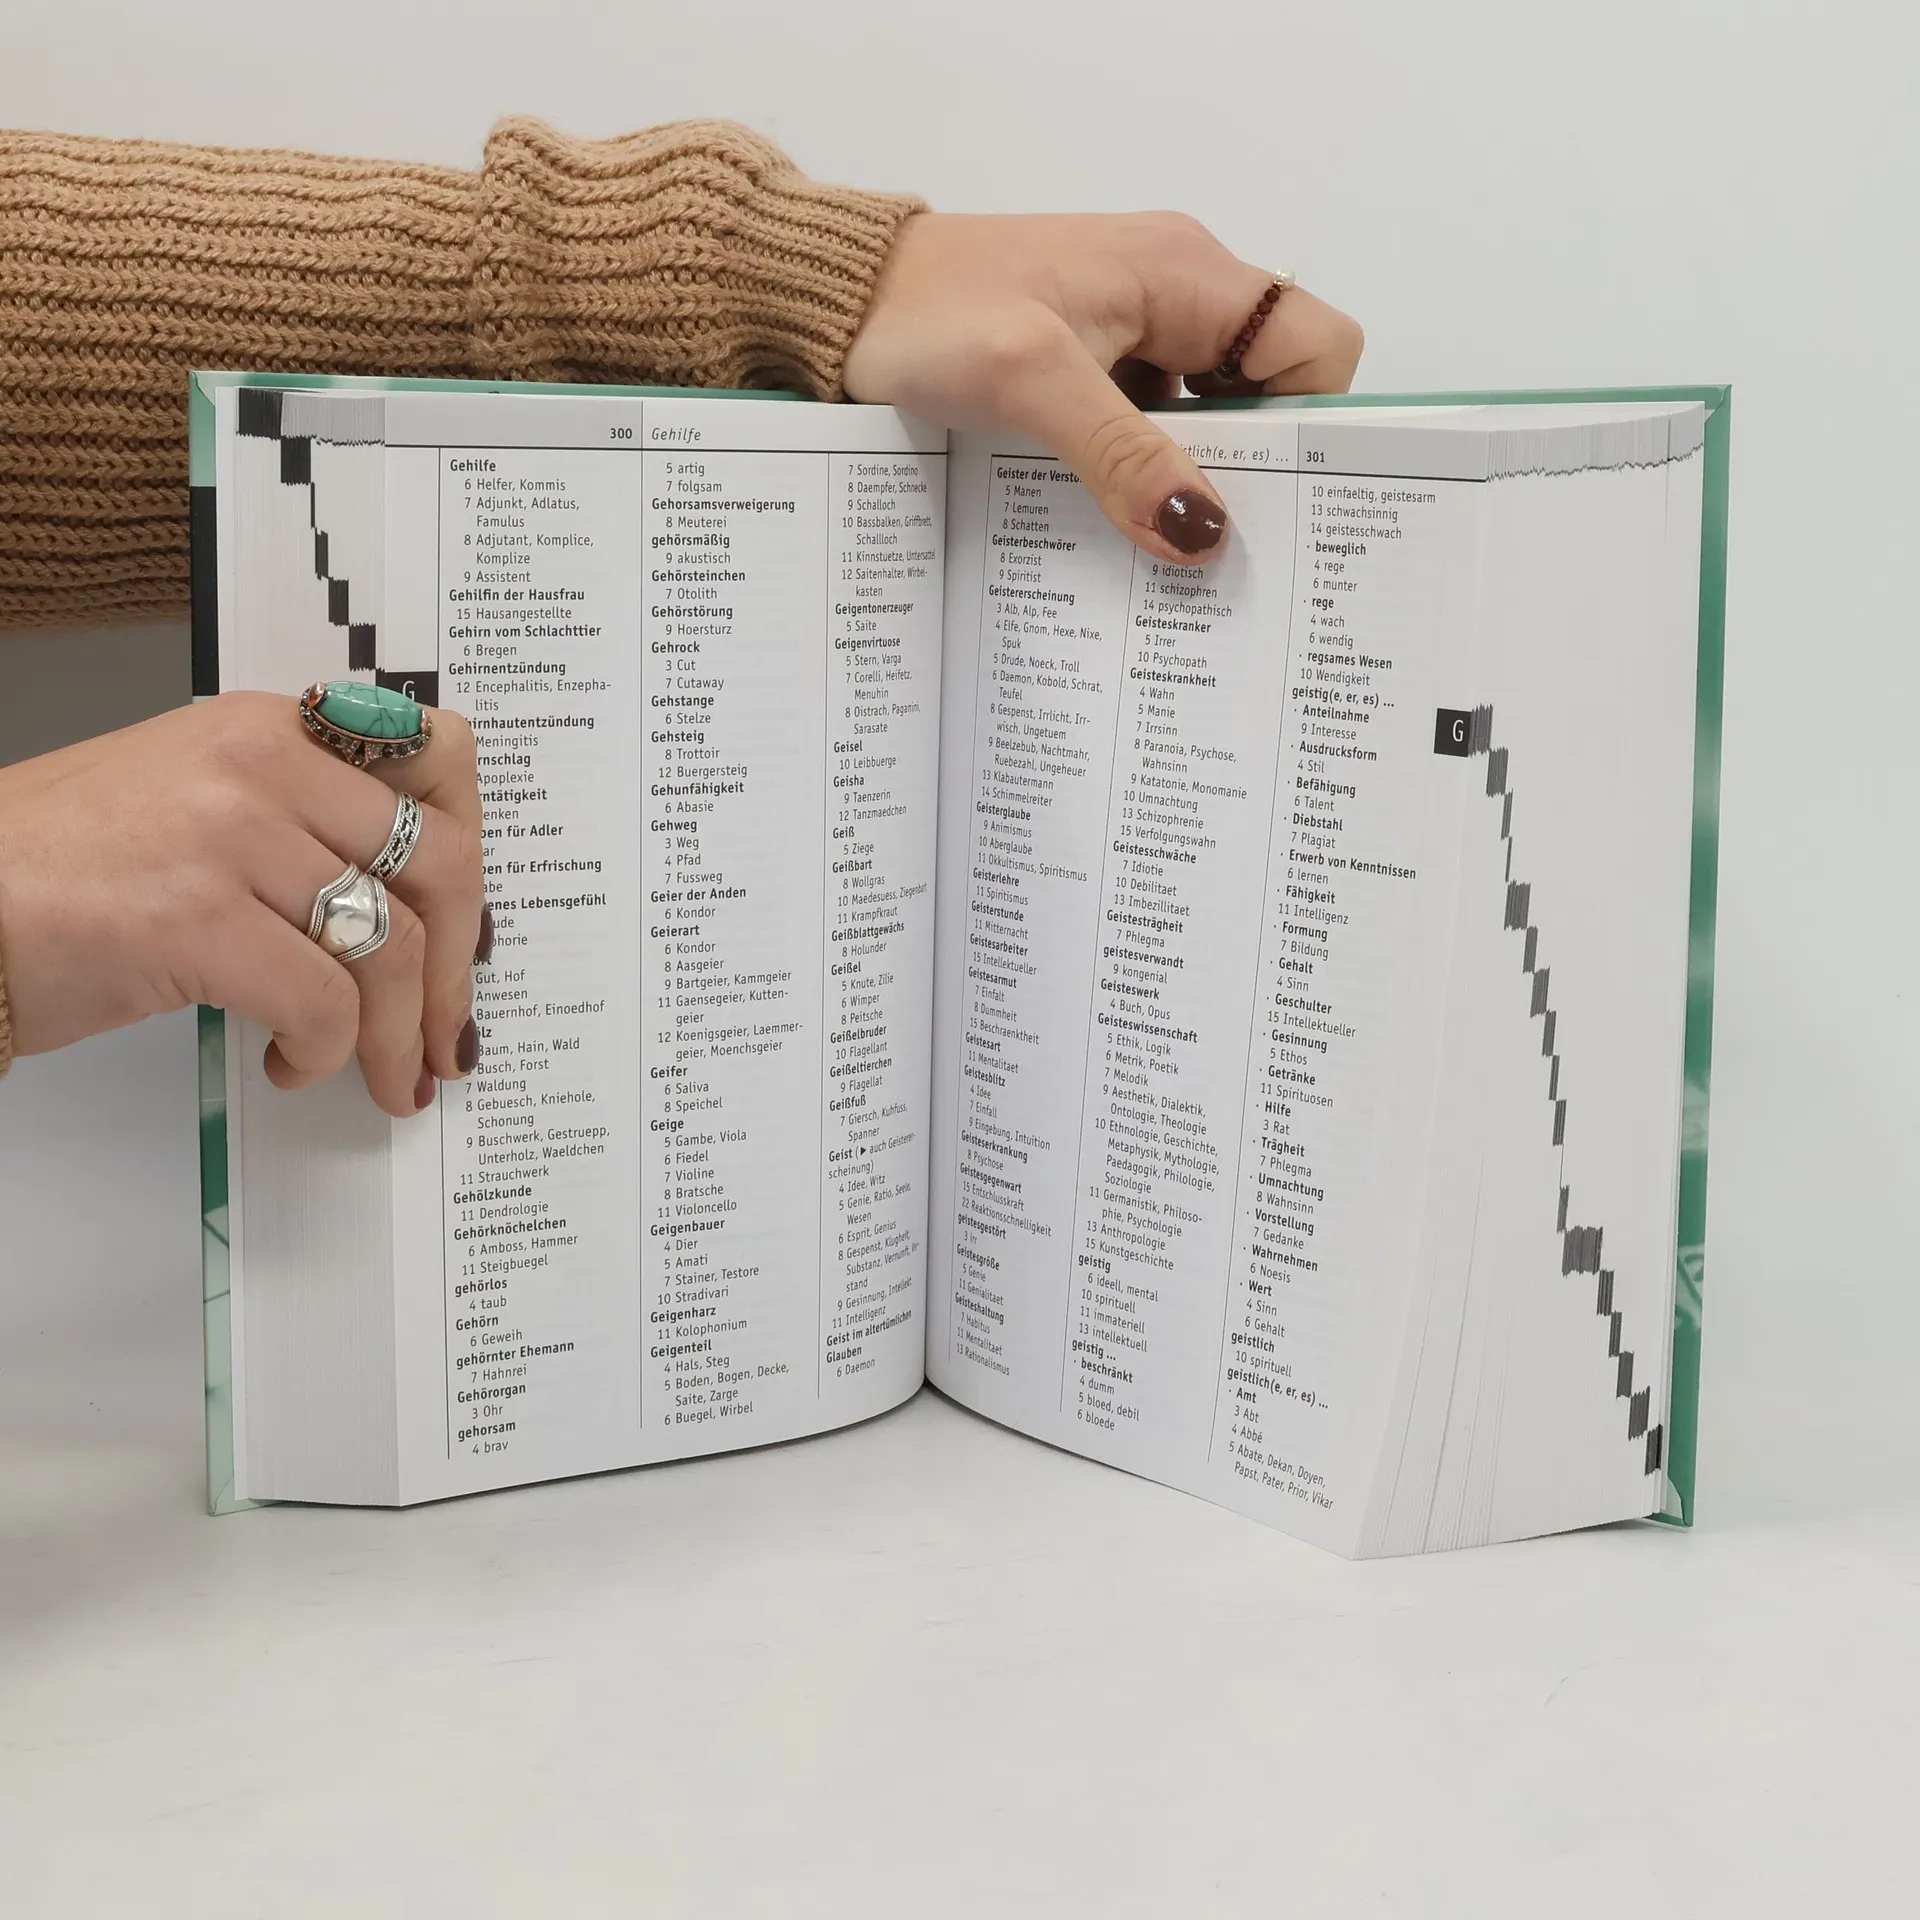 300 Gehilfe
Gehilfe
6 Helfer, Kommis
7 Adjunkt, Adlatus,
Famulus
8 Adjutant, Komplice,
Komplize
9 Assistent
Gehilfin der Hausfrau
15 Hausangestellte
Gehirn vom Schlachttier
6 Bregen
Gehirnentzündung
12 Encephalitis, Enzepha-
litis
hirnhautentzündung
Meningitis
rnschlag
Apoplexie
rntätigkeit
enken
ben für Adler
ar
ben für Erfrischung
abe
enes Lebensgefühl
ude
phorie
Gut, Hof
Anwesen
Bauernhof, Einoedhof
ölz
Baum, Hain, Wald
Busch, Forst
7 Waldung
8 Gebuesch, Kniehole,
Schonung
9 Buschwerk, Gestruepp,
Unterholz, Waeldchen
11 Strauchwerk
Gehölzkunde
11 Dendrologie
Gehörknöchelchen
6 Amboss, Hammer
11 Steigbuegel
gehörlos
4 taub
Gehörn
6 Geweih
gehörnter Ehemann
7 Hahnrei
Gehörorgan
3 Ohr
gehorsam
4 brav
5 artig
7 folgsam
Gehorsamsverweigerung
8 Meuterei
gehörsmäßig
9 akustisch
Gehörsteinchen
7 Otolith
Gehörstörung
9 Hoersturz
Gehrock
3 Cut
7 Cutaway
Gehstange
6 Stelze
Gehsteig
8 Trottoir
12 Buergersteig
Gehunfähigkeit
6 Abasie
Gehweg
3 Weg
4 Pfad
7 Fussweg
Geier der Anden
6 Kondor
Geierart
6 Kondor
8 Aasgeier
9 Bartgeier, Kammgeier
11 Gaensegeier, Kutten-
geier
12 Koenigsgeier, Laemmer-
geier, Moenchsgeier
Geifer
6 Saliva
8 Speichel
Geige
5 Gambe, Viola
6 Fiedel
7 Violine
8 Bratsche
11 Violoncello
Geigenbauer
4 Dier
5 Amati
7 Stainer, Testore
10 Stradivari
Geigenharz
11 Kolophonium
Geigenteil
4 Hals, Steg
5 Boden, Bogen, Decke,
Saite, Zarge
6 Buegel, Wirbel
7 Sordine, Sordino
8 Daempfer, Schnecke
9 Schalloch
10 Bassbalken, Griffbrett,
Schallloch
11 Kinnstuetze, Untersattel
12 Saitenhalter, Wirbel-
kasten
Geigentonerzeuger
5 Saite
Geigenvirtuose
5 Stern, Varga
7 Corelli, Heifetz,
Menuhin
8 Oistrach, Paganini,
Sarasate
Geisel
10 Leibbuerge
Geisha
9 Taenzerin
12 Tanzmaedchen
Geiß
5 Ziege
Geißbart
8 Wollgras
10 Maedesuess, Ziegenbart
11 Krampfkraut
Geißblattgewächs
8 Holunder
Geißel
5 Knute, Zilie
6 Wimper
8 Peitsche
Geißelbruder
10 Flagellant
Geißeltierchen
9 Flagellat
Geißfuß
7 Giersch, Kuhfuss,
Spanner
Geist (▶ auch Geisterer-
scheinung)
4 Idee, Witz
5 Genie, Ratio, Seele,
Wesen
6 Esprit, Genius
8 Gespenst, Klugheit,
Substanz, Vernunft, Ver-
stand
9 Gesinnung, Intellekt
11 Intelligenz
Geist im altertümlichen
Glauben
6 Daemon
G
stlich(e, er, es) ... 301
Geister der Versto
5 Manen
7 Lemuren
8 Schatten
Geisterbeschwörer
8 Exorzist
9 Spiritist
Geistererscheinung
3 Alb, Alp, Fee
4 Elfe, Gnom, Hexe, Nixe,
Spuk
5 Drude, Noeck, Troll
6 Daemon, Kobold, Schrat,
Teufel
8 Gespenst, Irrlicht, Irr-
wisch, Ungetuem
9 Beelzebub, Nachtmahr,
Ruebezahl, Ungeheuer
13 Klabautermann
14 Schimmelreiter
Geisterglaube
9 Animismus
10 Aberglaube
11 Okkultismus, Spiritismus
Geisterlehre
11 Spiritismus
Geisterstunde
11 Mitternacht
Geistesarbeiter
15 Intellektueller
Geistesarmut
7 Einfalt
8 Dummheit
15 Beschraenktheit
Geistesart
11 Mentalitaet
Geistesblitz
4 Idee
7 Einfall
9 Eingebung, Intuition
Geisteserkrankung
8 Psychose
Geistesgegenwart
15 Entschlusskraft
22 Reaktionsschnelligkeit
geistesgestört
3 irr
Geistesgröße
5 Genie
11 Genialitaet
Geisteshaltung
7 Habitus
11 Mentalitaet
13 Rationalismus
9 idiotisch
11 schizophren
14 psychopathisch
Geisteskranker
5 Irrer
10 Psychopath
Geisteskrankheit
4 Wahn
5 Manie
7 Irrsinn
8 Paranoia, Psychose,
Wahnsinn
9 Katatonie, Monomanie
10 Umnachtung
13 Schizophrenie
15 Verfolgungswahn
Geistesschwäche
7 Idiotie
10 Debilitaet
13 Imbezillitaet
Geistesträgheit
7 Phlegma
geistesverwandt
9 kongenial
Geisteswerk
4 Buch, Opus
Geisteswissenschaft
5 Ethik, Logik
6 Metrik, Poetik
7 Melodik
9 Aesthetik, Dialektik,
Ontologie, Theologie
10 Ethnologie, Geschichte,
Metaphysik, Mythologie,
Paedagogik, Philologie,
Soziologie
11 Germanistik, Philoso-
phie, Psychologie
13 Anthropologie
15 Kunstgeschichte
geistig
6 ideell, mental
10 spirituell
11 immateriell
13 intellektuell
geistig ...
· beschränkt
4 dumm
5 bloed, debil
6 bloede
10 einfaeltig, geistesarm
13 schwachsinnig
14 geistesschwach
· beweglich
4 rege
6 munter
· rege
4 wach
6 wendig
· regsames Wesen
10 Wendigkeit
geistig(e, er, es) ...
· Anteilnahme
9 Interesse
· Ausdrucksform
4 Stil
· Befähigung
6 Talent
· Diebstahl
7 Plagiat
· Erwerb von Kenntnissen
6 lernen
· Fähigkeit
11 Intelligenz
· Formung
7 Bildung
· Gehalt
4 Sinn
· Geschulter
15 Intellektueller
· Gesinnung
5 Ethos
· Getränke
11 Spirituosen
· Hilfe
3 Rat
· Trägheit
7 Phlegma
· Umnachtung
8 Wahnsinn
· Vorstellung
7 Gedanke
· Wahrnehmen
6 Noesis
· Wert
4 Sinn
6 Gehalt
geistlich
10 spirituell
geistlich(e, er, es) ...
· Amt
3 Abt
4 Abbé
5 Abate, Dekan, Doyen,
Papst, Pater, Prior, Vikar
G